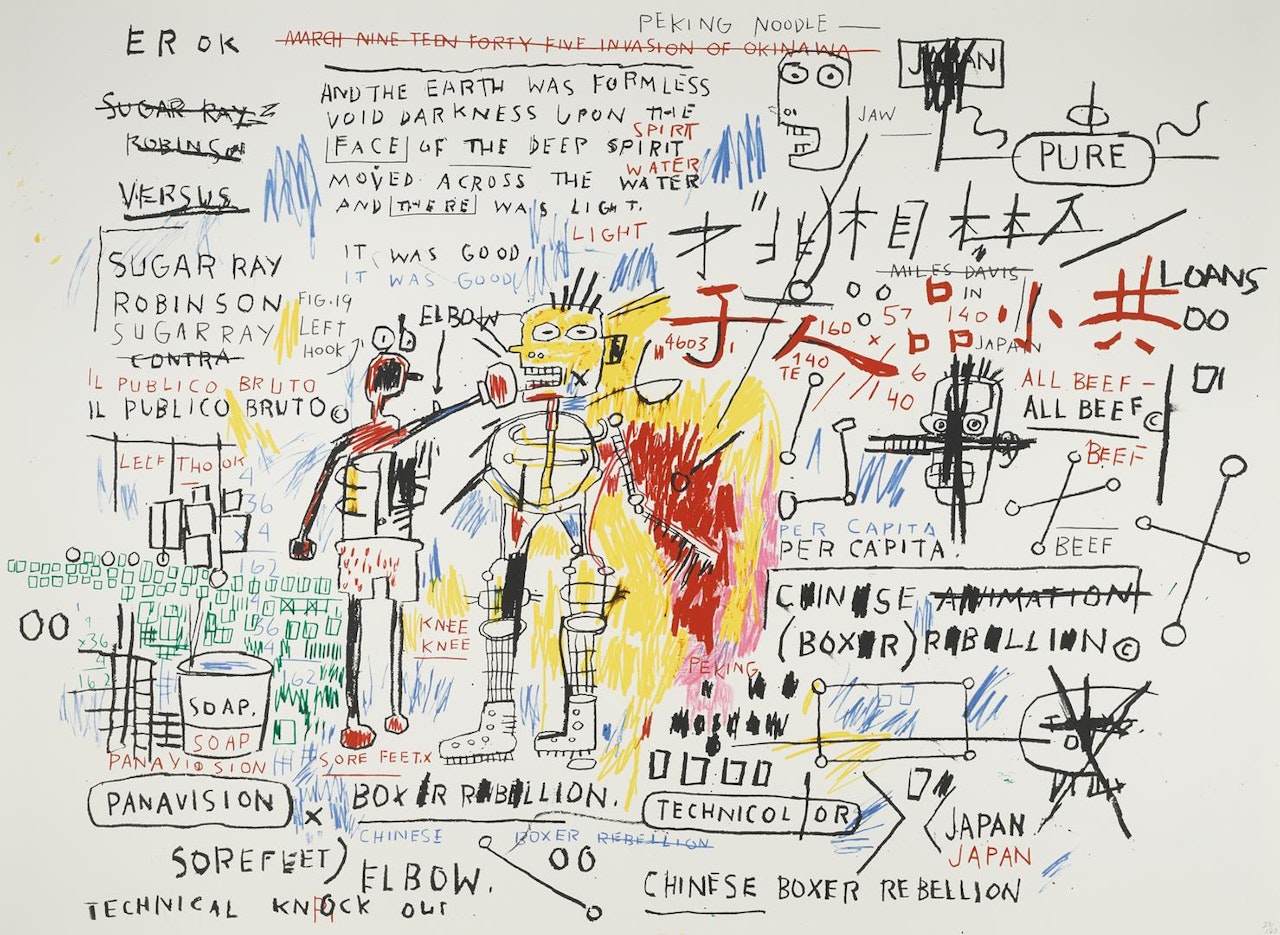 PEKING NOODLE
ER OK
MARCH NINE TEEN FORTY FIVE INVASION OF OKINAWA
JAPAN
AND THE EARTH WAS FORMLESS
SUGAR RAY
VOID DARKNESS UPON THE
JAW
SPIRIT
ROBINSON
FACE OF THE DEEP SPIRIT
PURE
WATER
MOVED ACROSS THE WATER
VERSUS
AND THERE WAS LIGHT.
LIGHT
IT WAS GOOD
IT WAS GOOD
SUGAR RAY
ROBINSON
SUGAR RAY
CONTRA
FIG. 19
LEFT
HOOK
ELBOW
MILES DAVIS
IN
140
JAPAN
LOANS
00
子人 小 共
160
57
4603
140
TE
6
40
IL PUBLICO BRUTO
IL PUBLICO BRUTO©
ALL BEEF -
ALL BEEF©
BEEF
LEEF THOOK
4
36
x 4
162
PER CAPITA
PER CAPITA.
BEEF
CHINESE ANIMATION
(BOXER) REBELLION©
00
KNEE
KNEE
x36
4
162
36
4
162
PEKING
MOSCOW
SOAP.
SOAP
PANAVISION
SORE FEET.X
PANAVISION
X
BOXER REBELLION.
TECHNICOLOR
CHINESE BOXER REBELLION
JAPAN
JAPAN
SOREFEET)
00
ELBOW.
CHINESE BOXER REBELLION
TECHNICAL KNOCK OUT